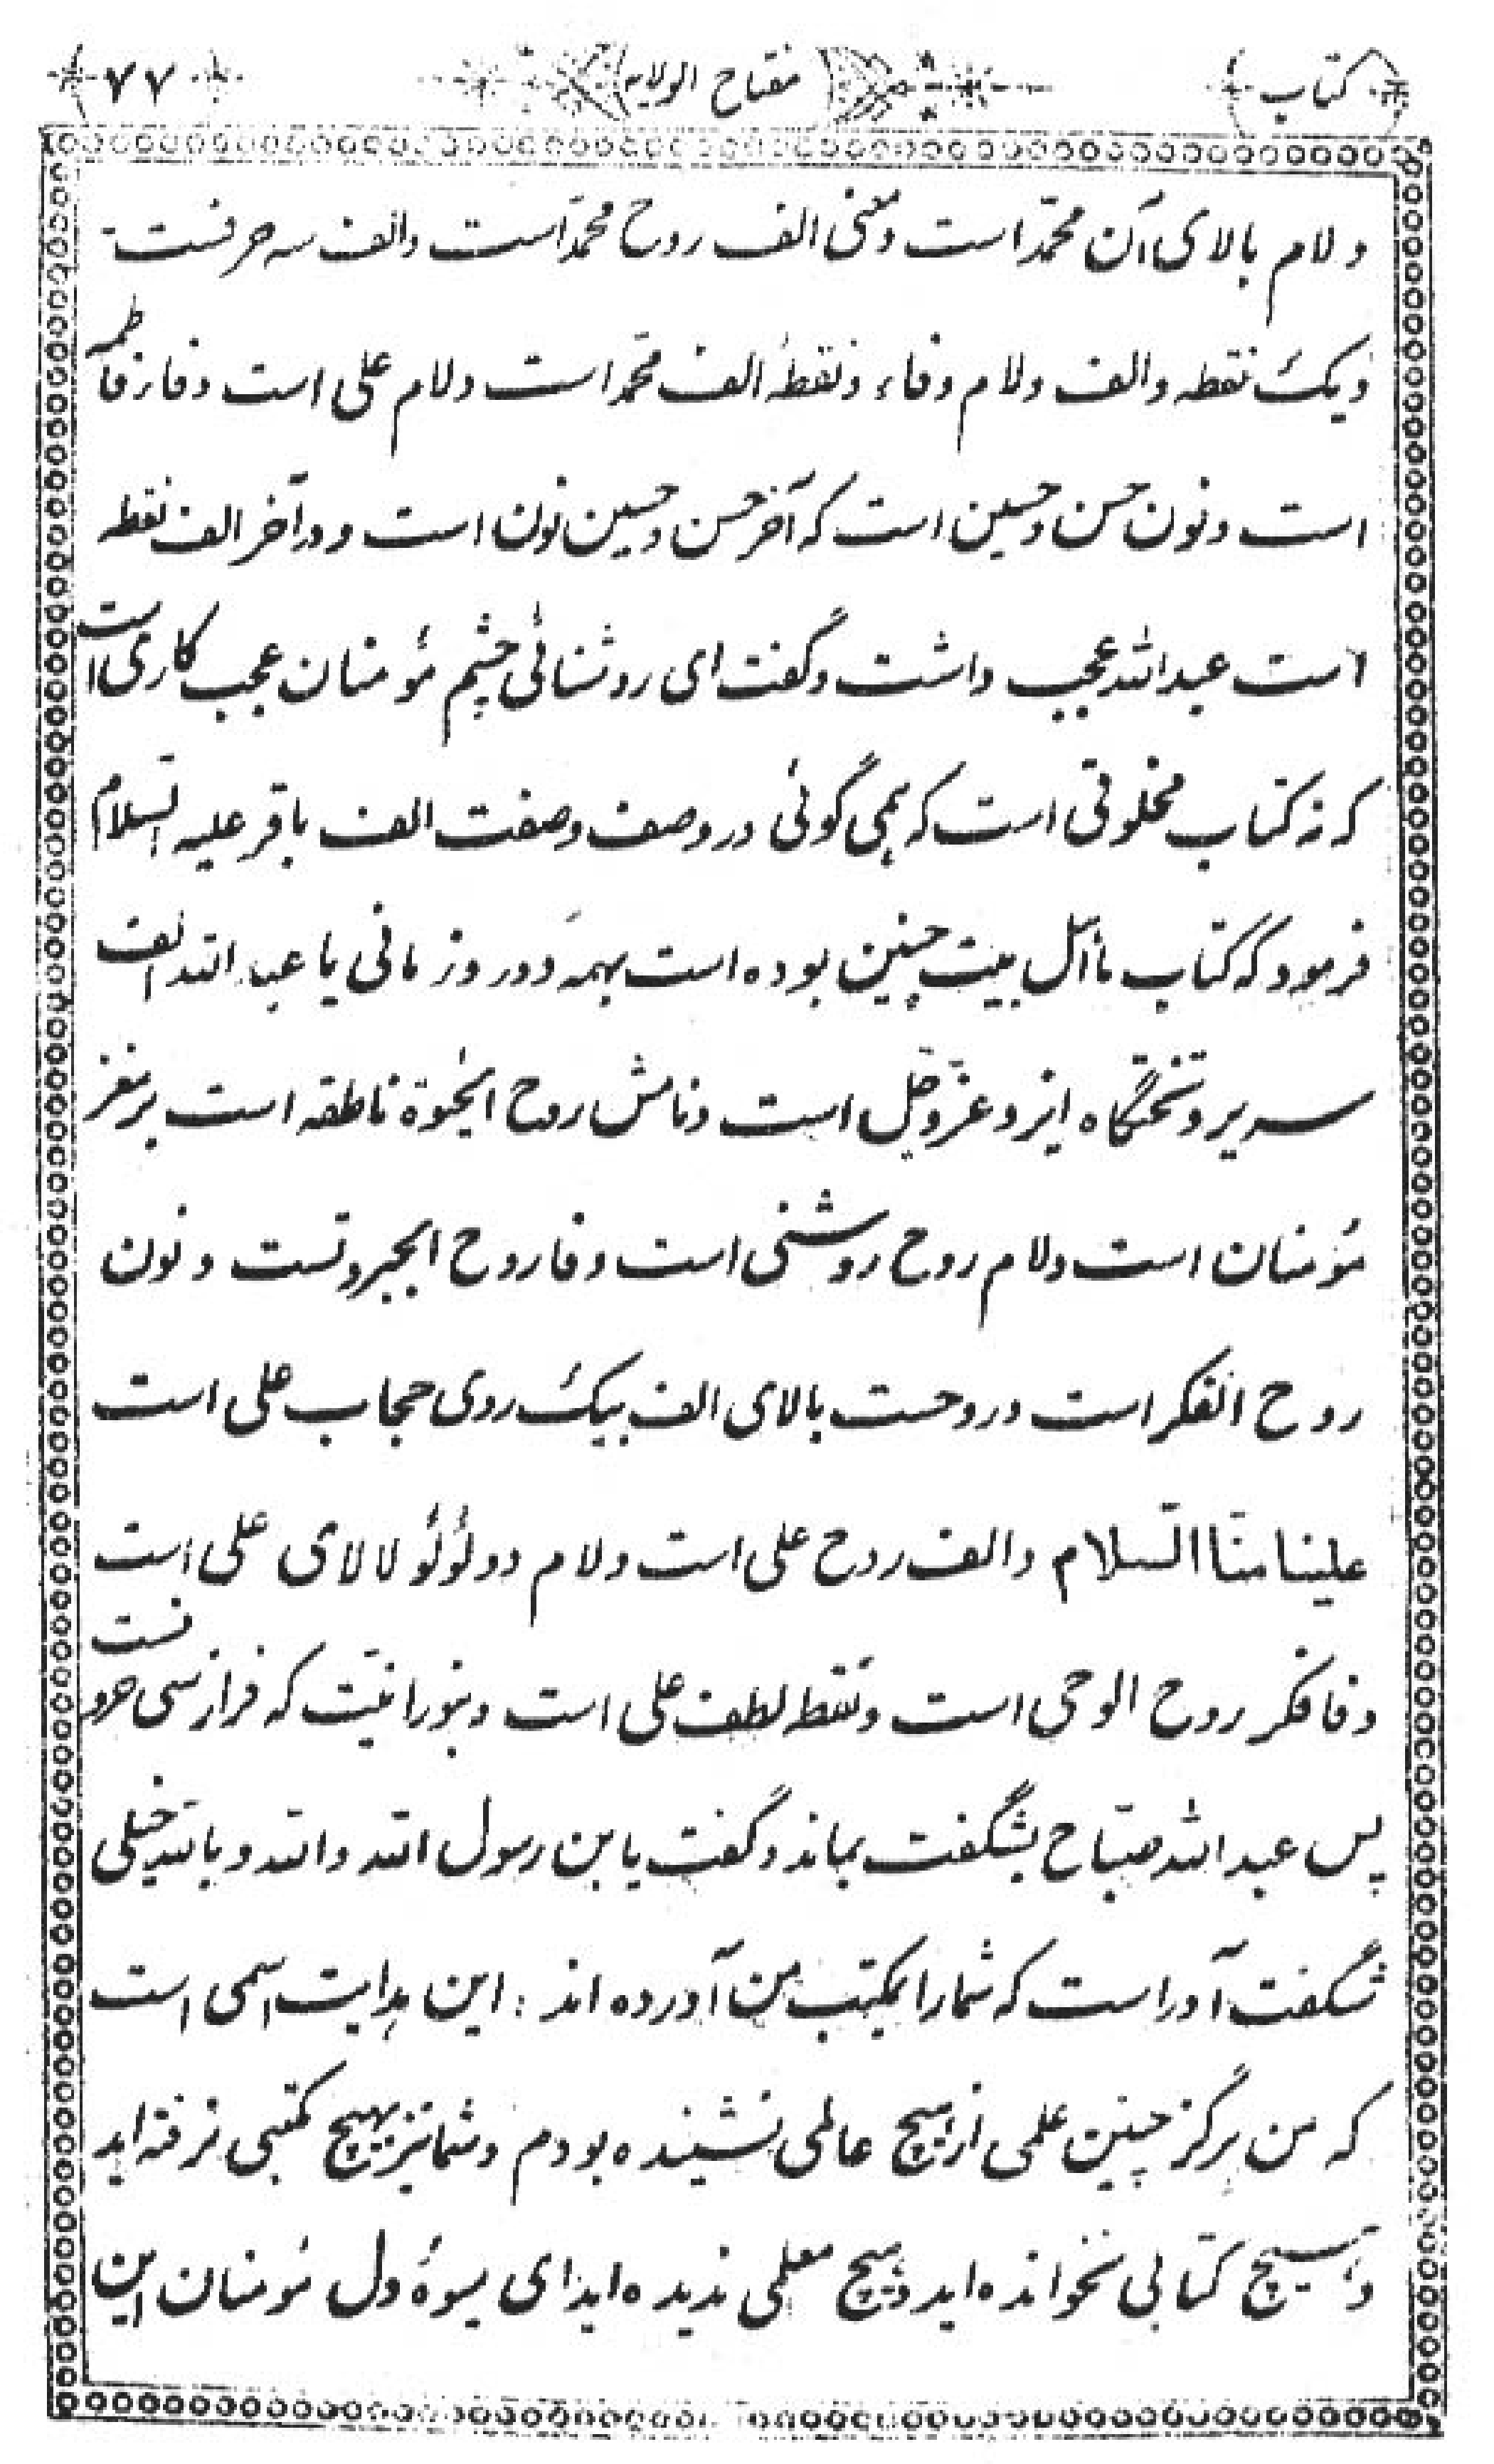 کتاب مفتاح الولایه ۷۷
و لام بالای آن محمّد است و معنی الف روح محمّد است والف سه حرفست
و یک نقطه والف ولام وفاء ونقطهٔ الف محمّد است ولام علی است وفا زفاطمه
است ونون حسن وحسین است که آخر حسن وحسین نون است ودر آخر الف نقطه
است عبدالله عجب داشت وگفت ای روشنائی چشم مؤمنان عجب کاری است
که نه کتاب مخلوقی است که می گوئی در وصف وصفت الف باقر علیه السلام
فرمود که کتاب ما اهل بیت چنین بوده است بهمه دور وزمانی یا عبدالله الف
سریر وتختگاه ایزد عزّوجل است ونامش روح الحیوة ناطقه است بر مغز
مؤمنان است ولام روح روشنی است وفا روح الجبروتست ونون
روح الفکر است وروحست بالای الف بیک روی حجاب علی است
علینا منّا السلام والف روح علی است ولام دو لؤلؤ لالای علی است
وفا فکر روح الوحی است ونقط لطف علی است وبنورانیّت که فراز سی حروفست
پس عبدالله صبّاح بشگفت بماند وگفت یابن رسول الله والله وبالله خیلی
شگفت آور است که شما را بمکتب من آورده اند : این هدایت اسمی است
که من هرگز چنین علمی از هیچ عالمی نشنیده بودم وشما نیز بهیچ مکتبی نرفته اید
وهیچ کتابی نخوانده اید وهیچ معلمی ندیده اید ای میوهٔ دل مؤمنان این